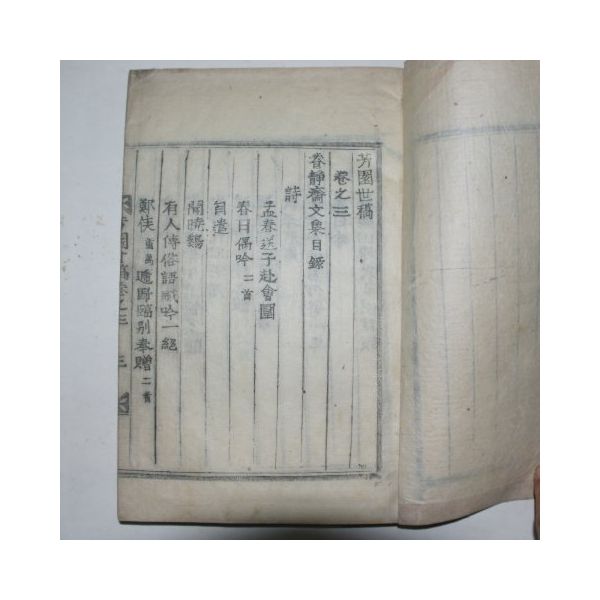 芳園世稿
卷之三
眷靜齋文集目錄
詩
孟春送子赴會圍
春日偶吟 二首
自遣
聞曉鷄
有人傳俗語戱吟一絕
鄭侯 萬 遞歸臨別奉贈 二首
芳園世稿卷之三 三